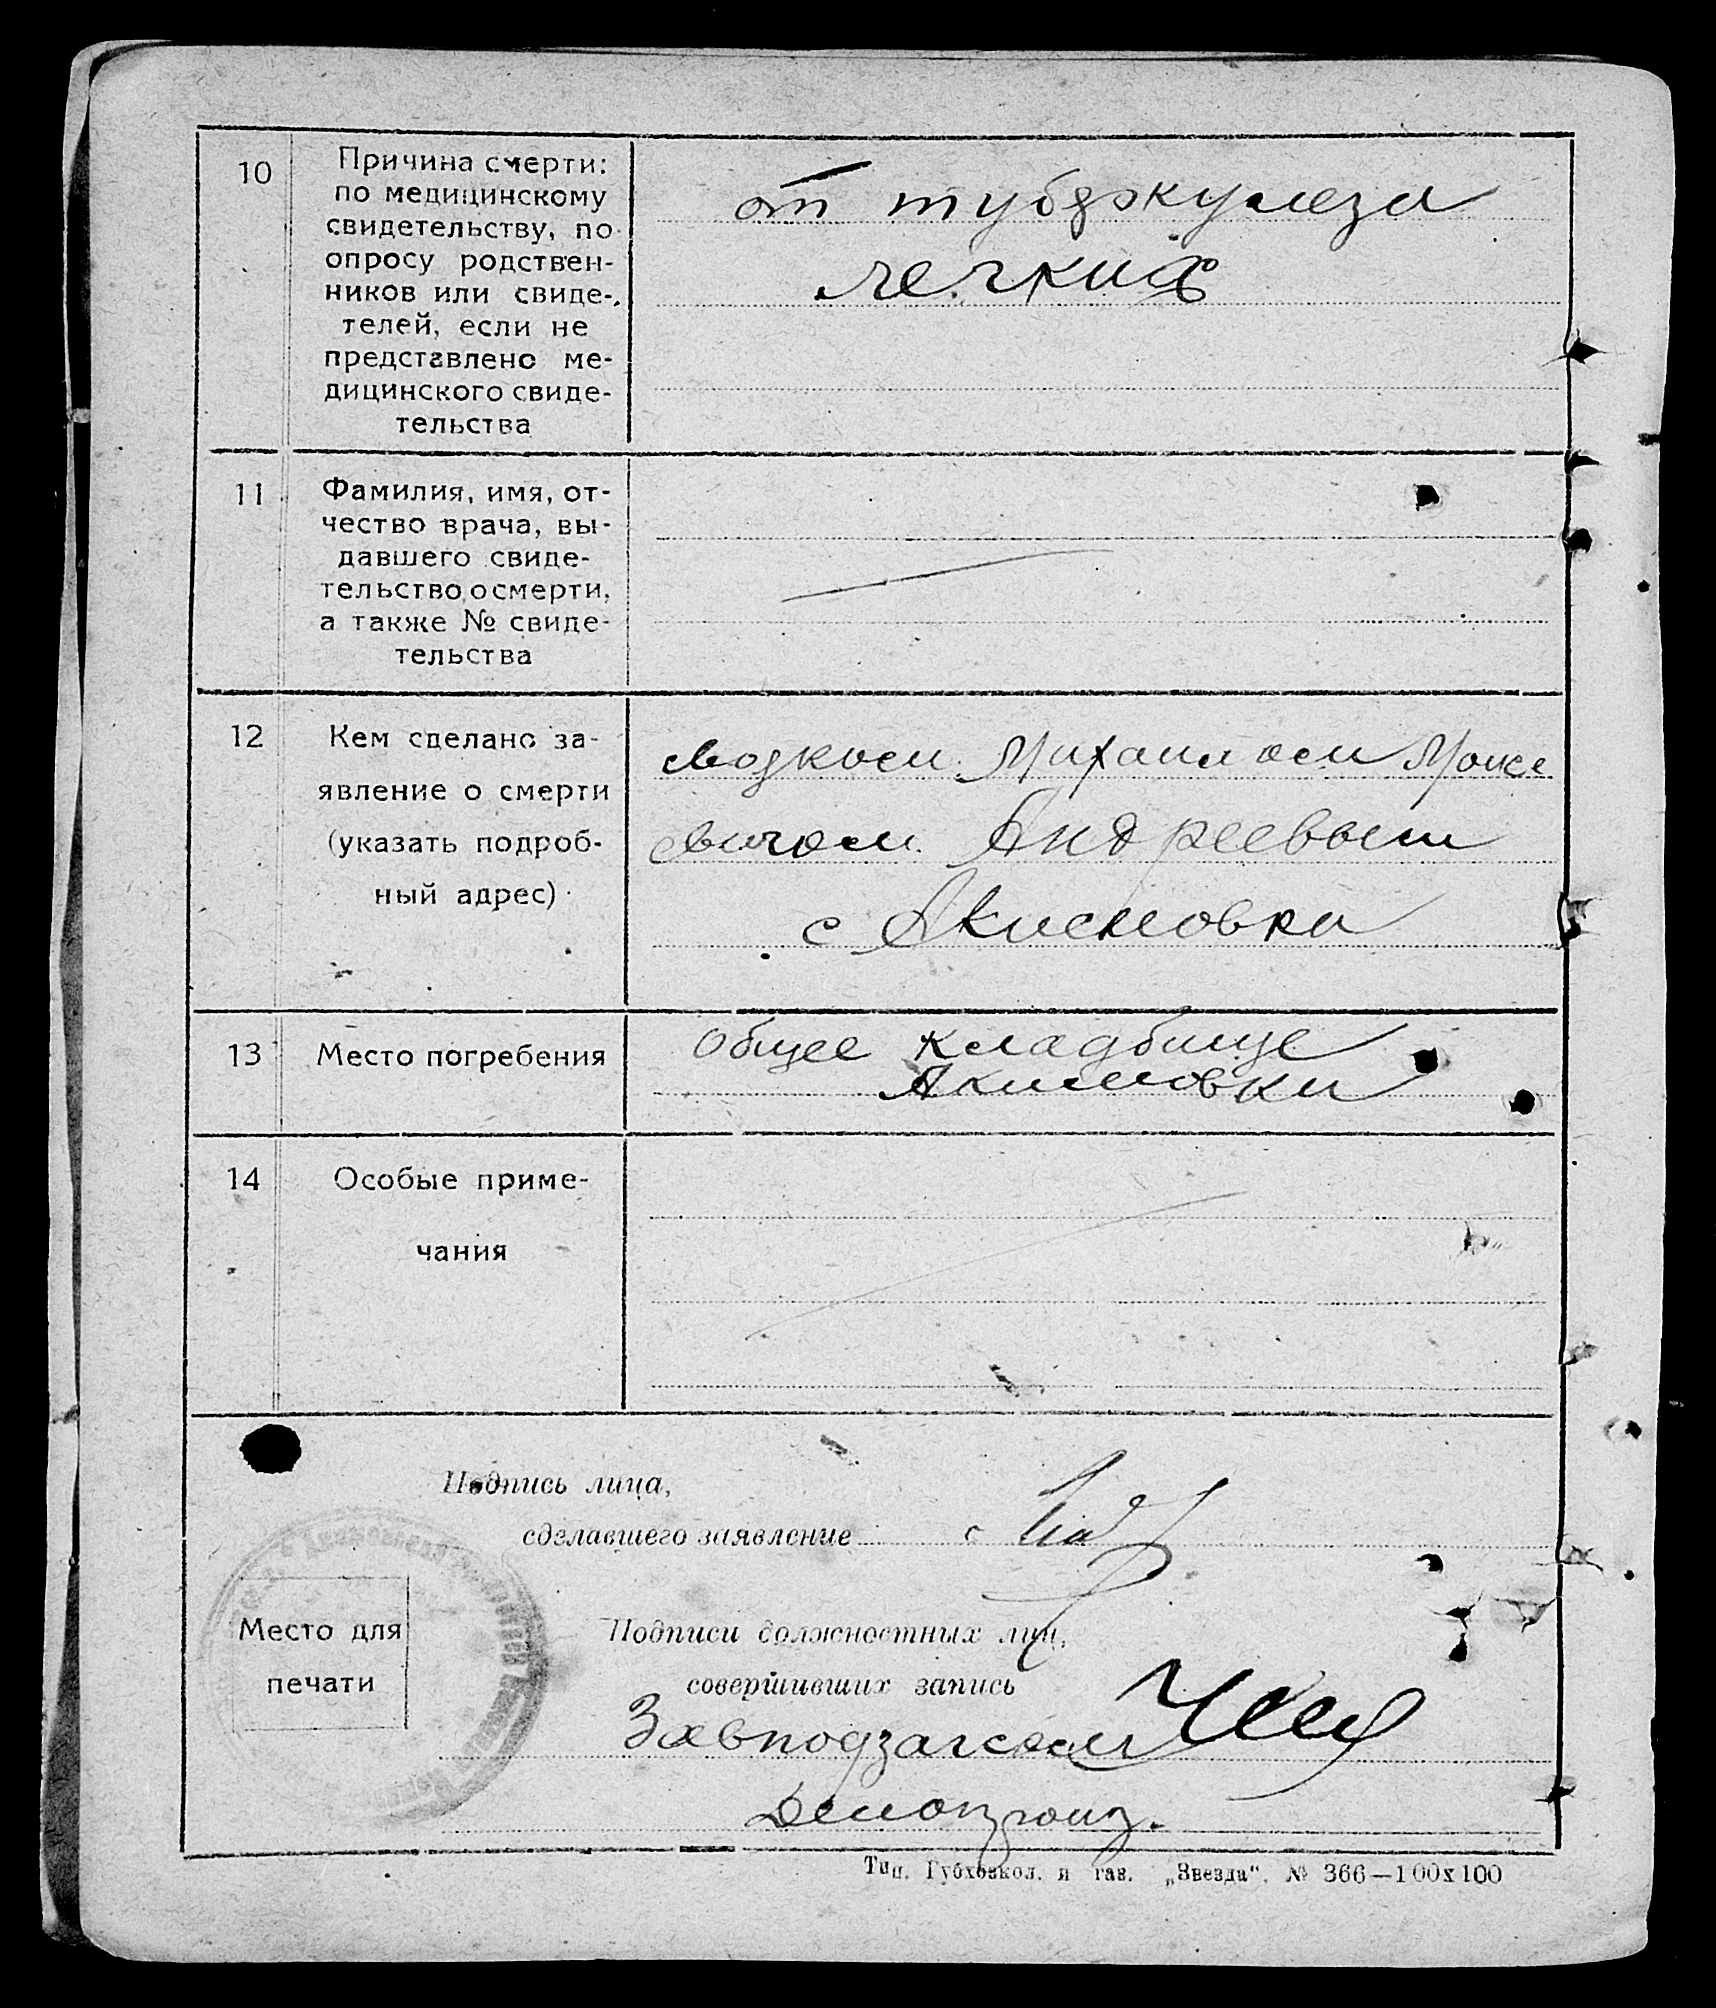 10
Причина смерти:
по медицинскому
свидетельству, по
опросу родствен-
ников или свиде-
телей, если не
представлено ме-
дицинского свиде-
тельства
от туберкулеза
легких
11
Фамилия, имя, от-
чество врача, вы-
давшего свиде-
тельство о смерти,
а также № свиде-
тельства
12
Кем сделано за-
явление о смерти
(указать подроб-
ный адрес)
Михаилом Моисе
евичом Андреевым
с Акимовка
13
Место погребения
Общее кладбище
Акимовки
14
Особые приме-
чания
Подпись лица,
сделавшего заявление
Место для
печати
Подписи должностных лиц,
совершивших запись
Завподзагсом
Делопроиз.
Тип. Губхозкол. и газ. „Звезда“. № 366—100х100